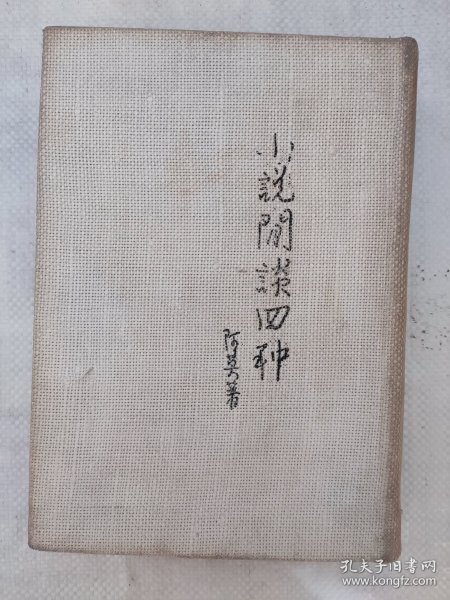 小説閒談四种
阿英著
孔夫子旧书网
www.kongfz.com